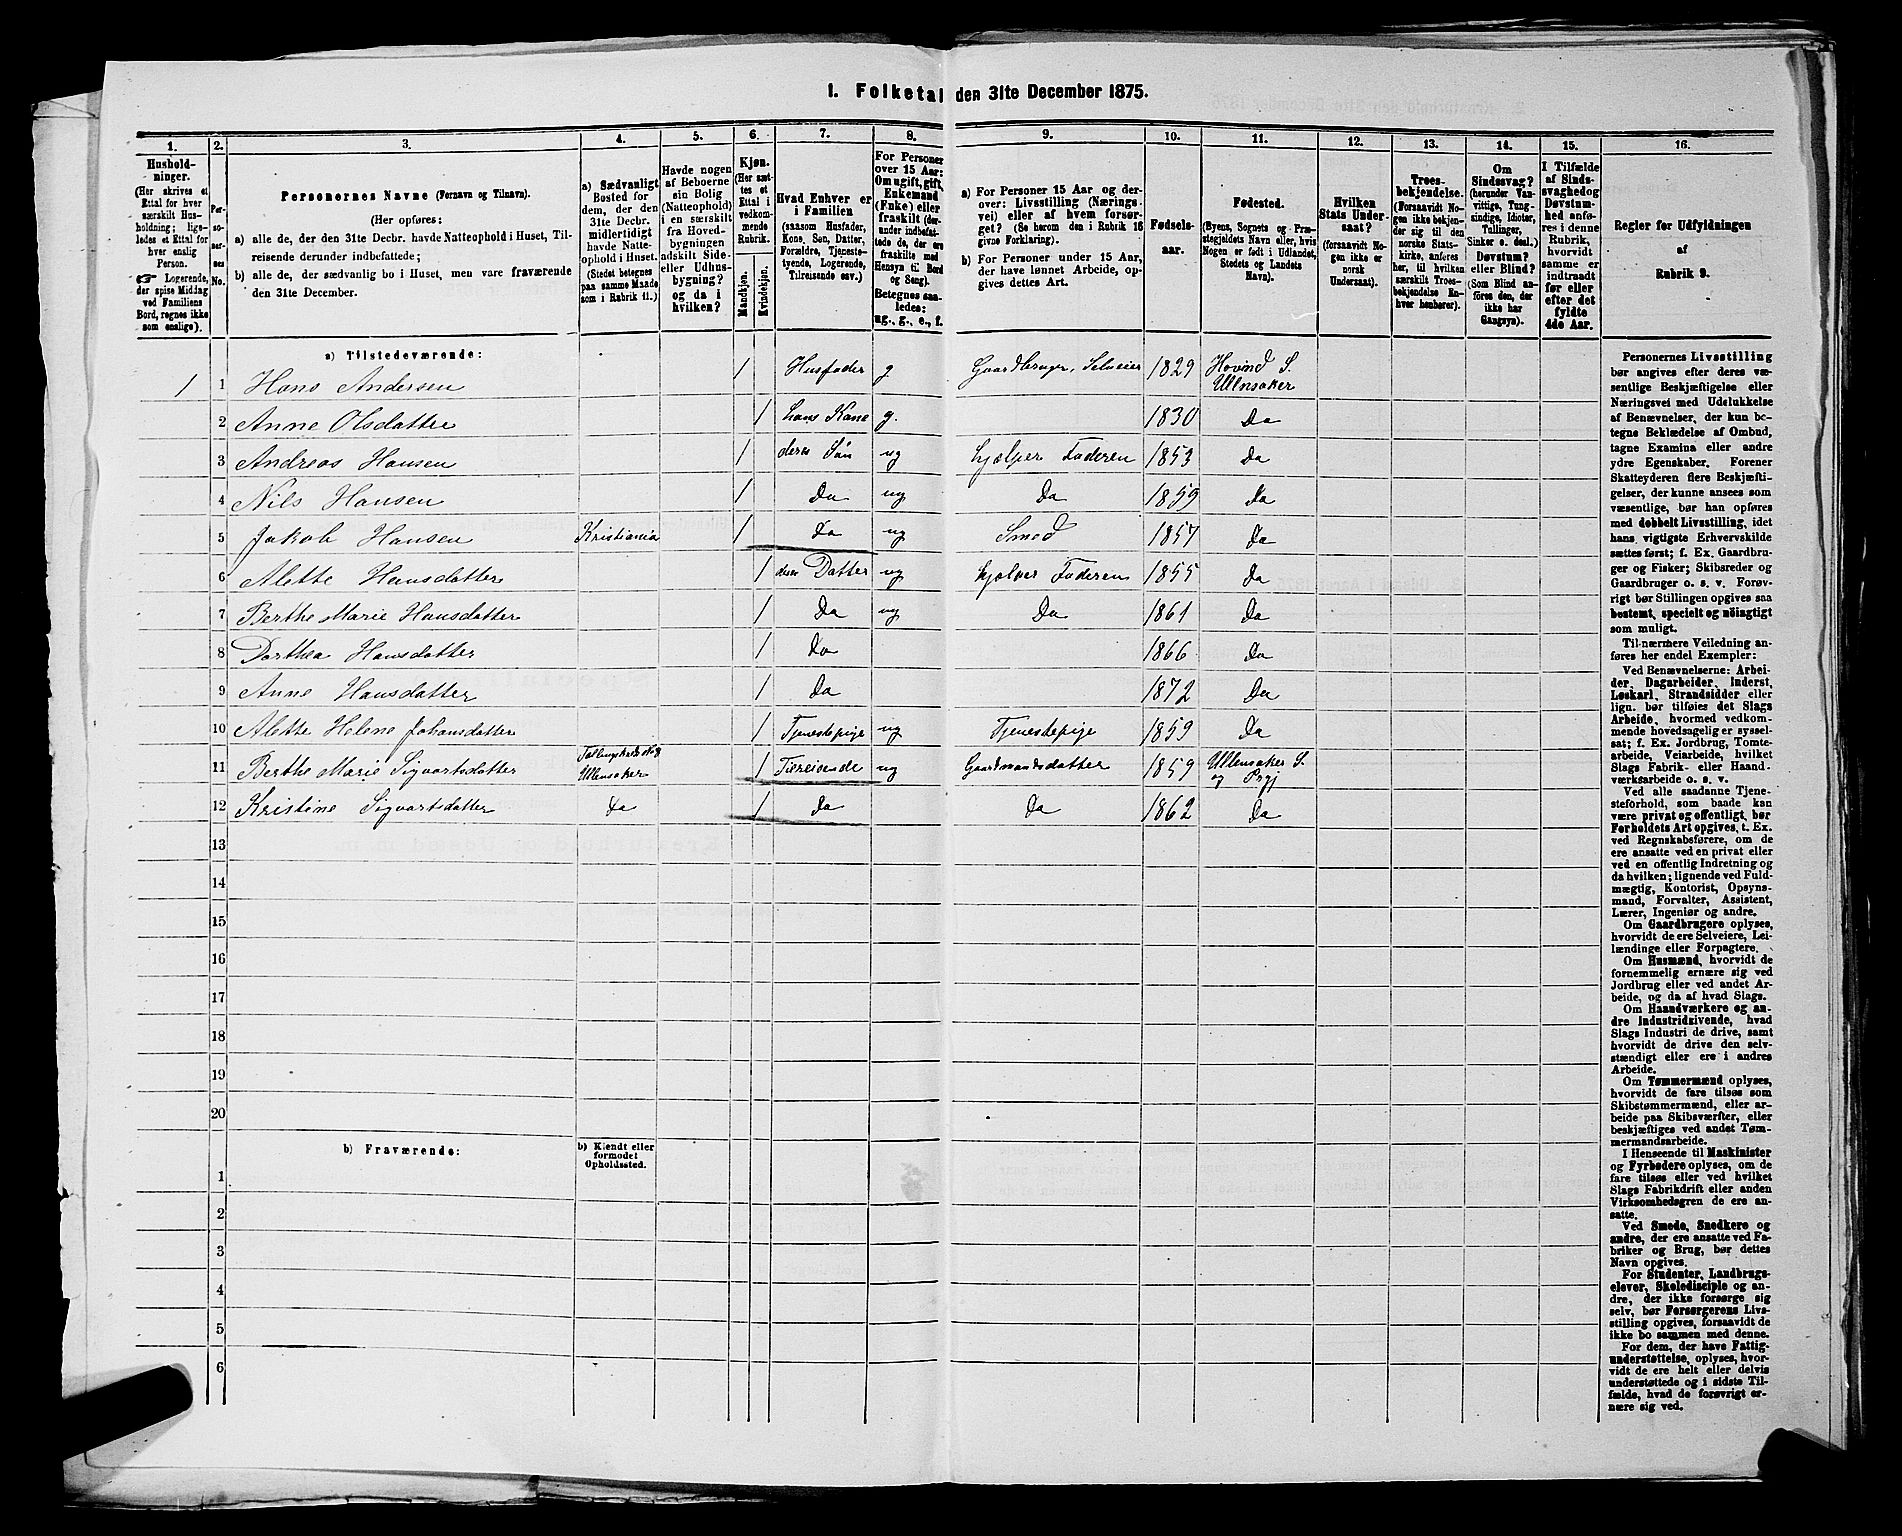 1. Folketal den 31te December 1875.
1. 2. 3. 4. 5. 6. 7. 8. 9. 10. 11. 12. 13. 14. 15. 16.
Hushold-
ninger.
(Her skrives et
Ettal for hver
særskilt Hus-
holdning; lige-
ledes et Ettal for
hver enslig
Person.
☞ Logerende,
der spise Middag
ved Familiens
Bord, regnes ikke
som enslige).
Per-
so-
ner-
nes
No.
Personernes Navne (Fornavn og Tilnavn).
(Her opføres:
a) alle de, der den 31te Decbr. havde Natteophold i Huset, Til-
reisende derunder indbefattede;
b) alle de, der sædvanlig bo i Huset, men vare fraværende
den 31te December.
a) Sædvanligt
Bosted for
dem, der den
31te Decbr.
midlertidigt
havde Natte-
ophold i Huset.
(Stedet betegnes
paa samme Maade
som i Rubrik 11.)
Havde nogen
af Beboerne
sin Bolig
(Natteophold)
i en særskilt
fra Hoved-
bygningen
adskilt Side-
eller Udhus-
bygning?
og da i
hvilken?
Kjøn.
(Her sæt-
tes et
Ettal i
vedkom-
mende
Rubrik.
Mandkjøn.
Kvindekjøn.
Hvad Enhver er
i Familien
(saasom Husfader,
Kone, Søn, Datter,
Forældre, Tjeneste-
tyende, Logerende,
Tilreisende osv.)
For Personer
over 15 Aar:
Om ugift, gift,
Enkemand
(Enke) eller
fraskilt (der-
under indbefat-
tede de, der ere
fraskilte med
Hensyn til Bord
og Seng).
Betegnes saa-
ledes:
ug., g., e., f.
a) For Personer 15 Aar og der-
over: Livsstilling (Nærings-
vei) eller af hvem forsør-
get? (Se herom den i Rubrik 16
givne Forklaring).
b) For Personer under 15 Aar,
der have lønnet Arbeide, op-
gives dettes Art.
Fødsels-
aar.
Fødested.
(Byens, Sognets og Præ-
stegjeldets Navn eller, hvis
Nogen er født i Udlandet,
Stedets og Landets
Navn).
Hvilken
Stats Under-
saat?
(forsaavidt No-
gen ikke er
norsk
Undersaat).
Troes-
bekjendelse.
(Forsaavidt No-
gen ikke bekjen-
der sig til den
norske Stats-
kirke, anføres
her, til hvilken
særskilt Troes-
bekjendelse En-
hver henhører).
Om
Sindssvag?
(herunder Van-
vittige, Tung-
sindige, Idioter,
Tullinger,
Sinker o. desl.)
Døvstum?
eller Blind?
(Som Blind an-
føres den, der
ikke har
Gangsyn).
I Tilfælde
af Sinds-
svaghed og
Døvstum-
hed anfø-
res i denne
Rubrik,
hvorvidt
samme er
indtraadt
før eller
efter det
fyldte
4de Aar.
Regler for Udfyldningen
af
Rubrik 9.
a) Tilstedeværende:
1 1 Hans Andersen 1 Husfader g. Gaardbruger, Selveier 1829 Hovind S. Ullensaker
2 Anne Olsdatter 1 hans Kone g. 1830 Do
3 Andreas Hansen 1 deres Søn ug hjælper Faderen 1853 Do
4 Nils Hansen 1 Do ug Do 1859 Do
5 Jakob Hansen Kristiania 1 Do ug Smed 1857 Do
6 Alette Hansdatter 1 deres Datter ug hjælper Faderen 1855 Do
7 Berthe Marie Hansdatter 1 Do ug Do 1861 Do
8 Dorthea Hansdatter 1 Do 1866 Do
9 Anne Hansdatter 1 Do 1872 Do
10 Alette Helene Johansdatter 1 Tjenestepige ug Tjenestepige 1859 Do
11 Berthe Marie Sigvartsdatter Ullensaker 1 Tilreisende ug Gaardmandsdatter 1859 Ullensaker S. og Prgj
12 Kristine Sigvartsdatter Do 1 Do Do 1862 Do
13
14
15
16
17
18
19
20
b) Fraværende:
b) Kjendt eller
formodet
Opholdssted.
1
2
3
4
5
6
Personernes Livsstilling
bør angives efter deres væ-
sentlige Beskjæftigelse eller
Næringsvei med Udelukkelse
af Benævnelser, der kun be-
tegne Beklædelse af Ombud,
tagne Examina eller andre
ydre Egenskaber. Forener
Skatteyderen flere Beskjæfti-
gelser, der kunne ansees som
væsentlige, bør han opføres
med dobbelt Livsstilling, idet
hans vigtigste Erhvervskilde
sættes først; f. Ex. Gaardbru-
ger og Fisker; Skibsreder og
Gaardbruger o. s. v. Forøv-
rigt bør Stillingen opgives saa
bestemt, specielt og nöiagtigt
som muligt.
Til nærmere Veiledning an-
føres her endel Exempler:
Ved Benævnelserne: Arbei-
der, Dagarbeider, Inderst,
Løskarl, Strandsidder eller
lign. bør tilføies det Slags
Arbeide, hvormed vedkom-
mende hovedsagelig er syssel-
sat; f. Ex. Jordbrug, Tomte-
arbeide, Veiarbeide, hvilket
Slags Fabrik- eller Haand-
værksarbeide o. s. v.
Ved alle saadanne Tjene-
steforhold, som baade kan
være privat og offentligt, bør
Forholdets Art opgives, t. Ex.
ved Regnskabsførere, om de
ere ansatte ved en privat eller
ved en offentlig Indretning og
da hvilken; lignende ved Fuld-
mægtig, Kontorist, Opsyns-
mand, Forvalter, Assistent,
Lærer, Ingeniør og andre.
Om Gaardbrugere oplyses,
hvorvidt de ere Selveiere, Lei-
lændinge eller Forpagtere.
Om Husmænd, hvorvidt de
fornemmelig ernære sig ved
Jordbrug eller ved andet Ar-
beide, og da af hvad Slags.
Om Haandværkere og an-
dre Industridrivende, hvad
Slags Industri de drive, samt
hvorvidt de drive den selv-
stændigt eller ere i andres
Arbeide.
Om Tømmermænd oplyses,
hvorvidt de fare tilsøs som
Skibstømmermænd, eller ar-
beide paa Skibsværfter, eller
beskjæftiges ved andet Tøm-
mermandsarbeide.
I Henseende til Maskinister
og Fyrbødere oplyses, om de
fare tilsøs eller ved hvilket
Slags Fabrikdrift eller anden
Virksomhedsgren de ere an-
satte.
Ved Smede, Snedkere og
andre, der ere ansatte ved Fa-
briker og Brug, bør dettes
Navn opgives.
For Studenter, Landbrugs-
elever, Skoledisciple og an-
dre, der ikke forsørge sig
selv, bør Forsørgerens Livs-
stilling opgives, forsaavidt de
ikke bo sammen med denne.
For dem, der have Fattig-
understøttelse, oplyses, hvor-
vidt de ere helt eller delvis
understøttede og i sidste Til-
fælde, hvad de forøvrigt er-
nære sig ved.